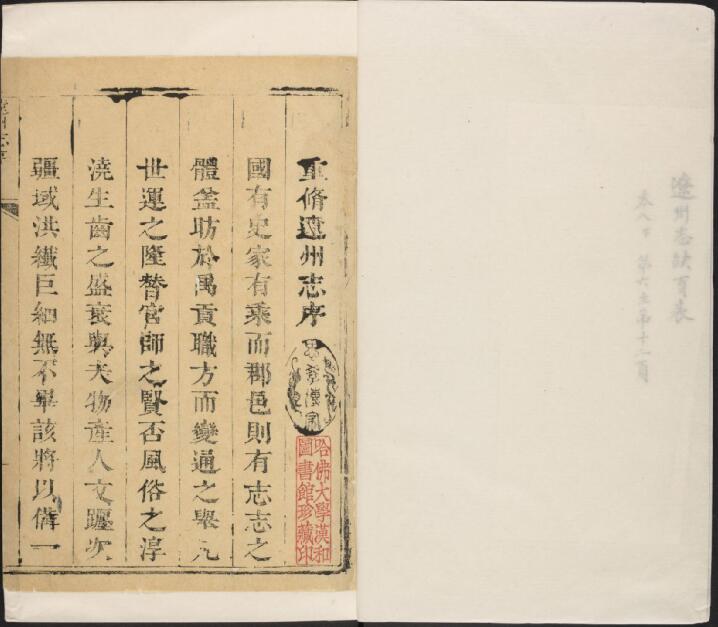 遼州志缺頁表
卷八下 第六至第十二頁
重脩遼州志序
哈佛大學漢和
圖書館珍藏印
國有史家有乘而郡邑則有志志之
體盖昉於禹貢職方而變通之舉凡
世運之隆替官師之賢否風俗之淳
澆生齒之盛衰與夫物產人文躔次
疆域洪纖巨細無不畢該將以備一